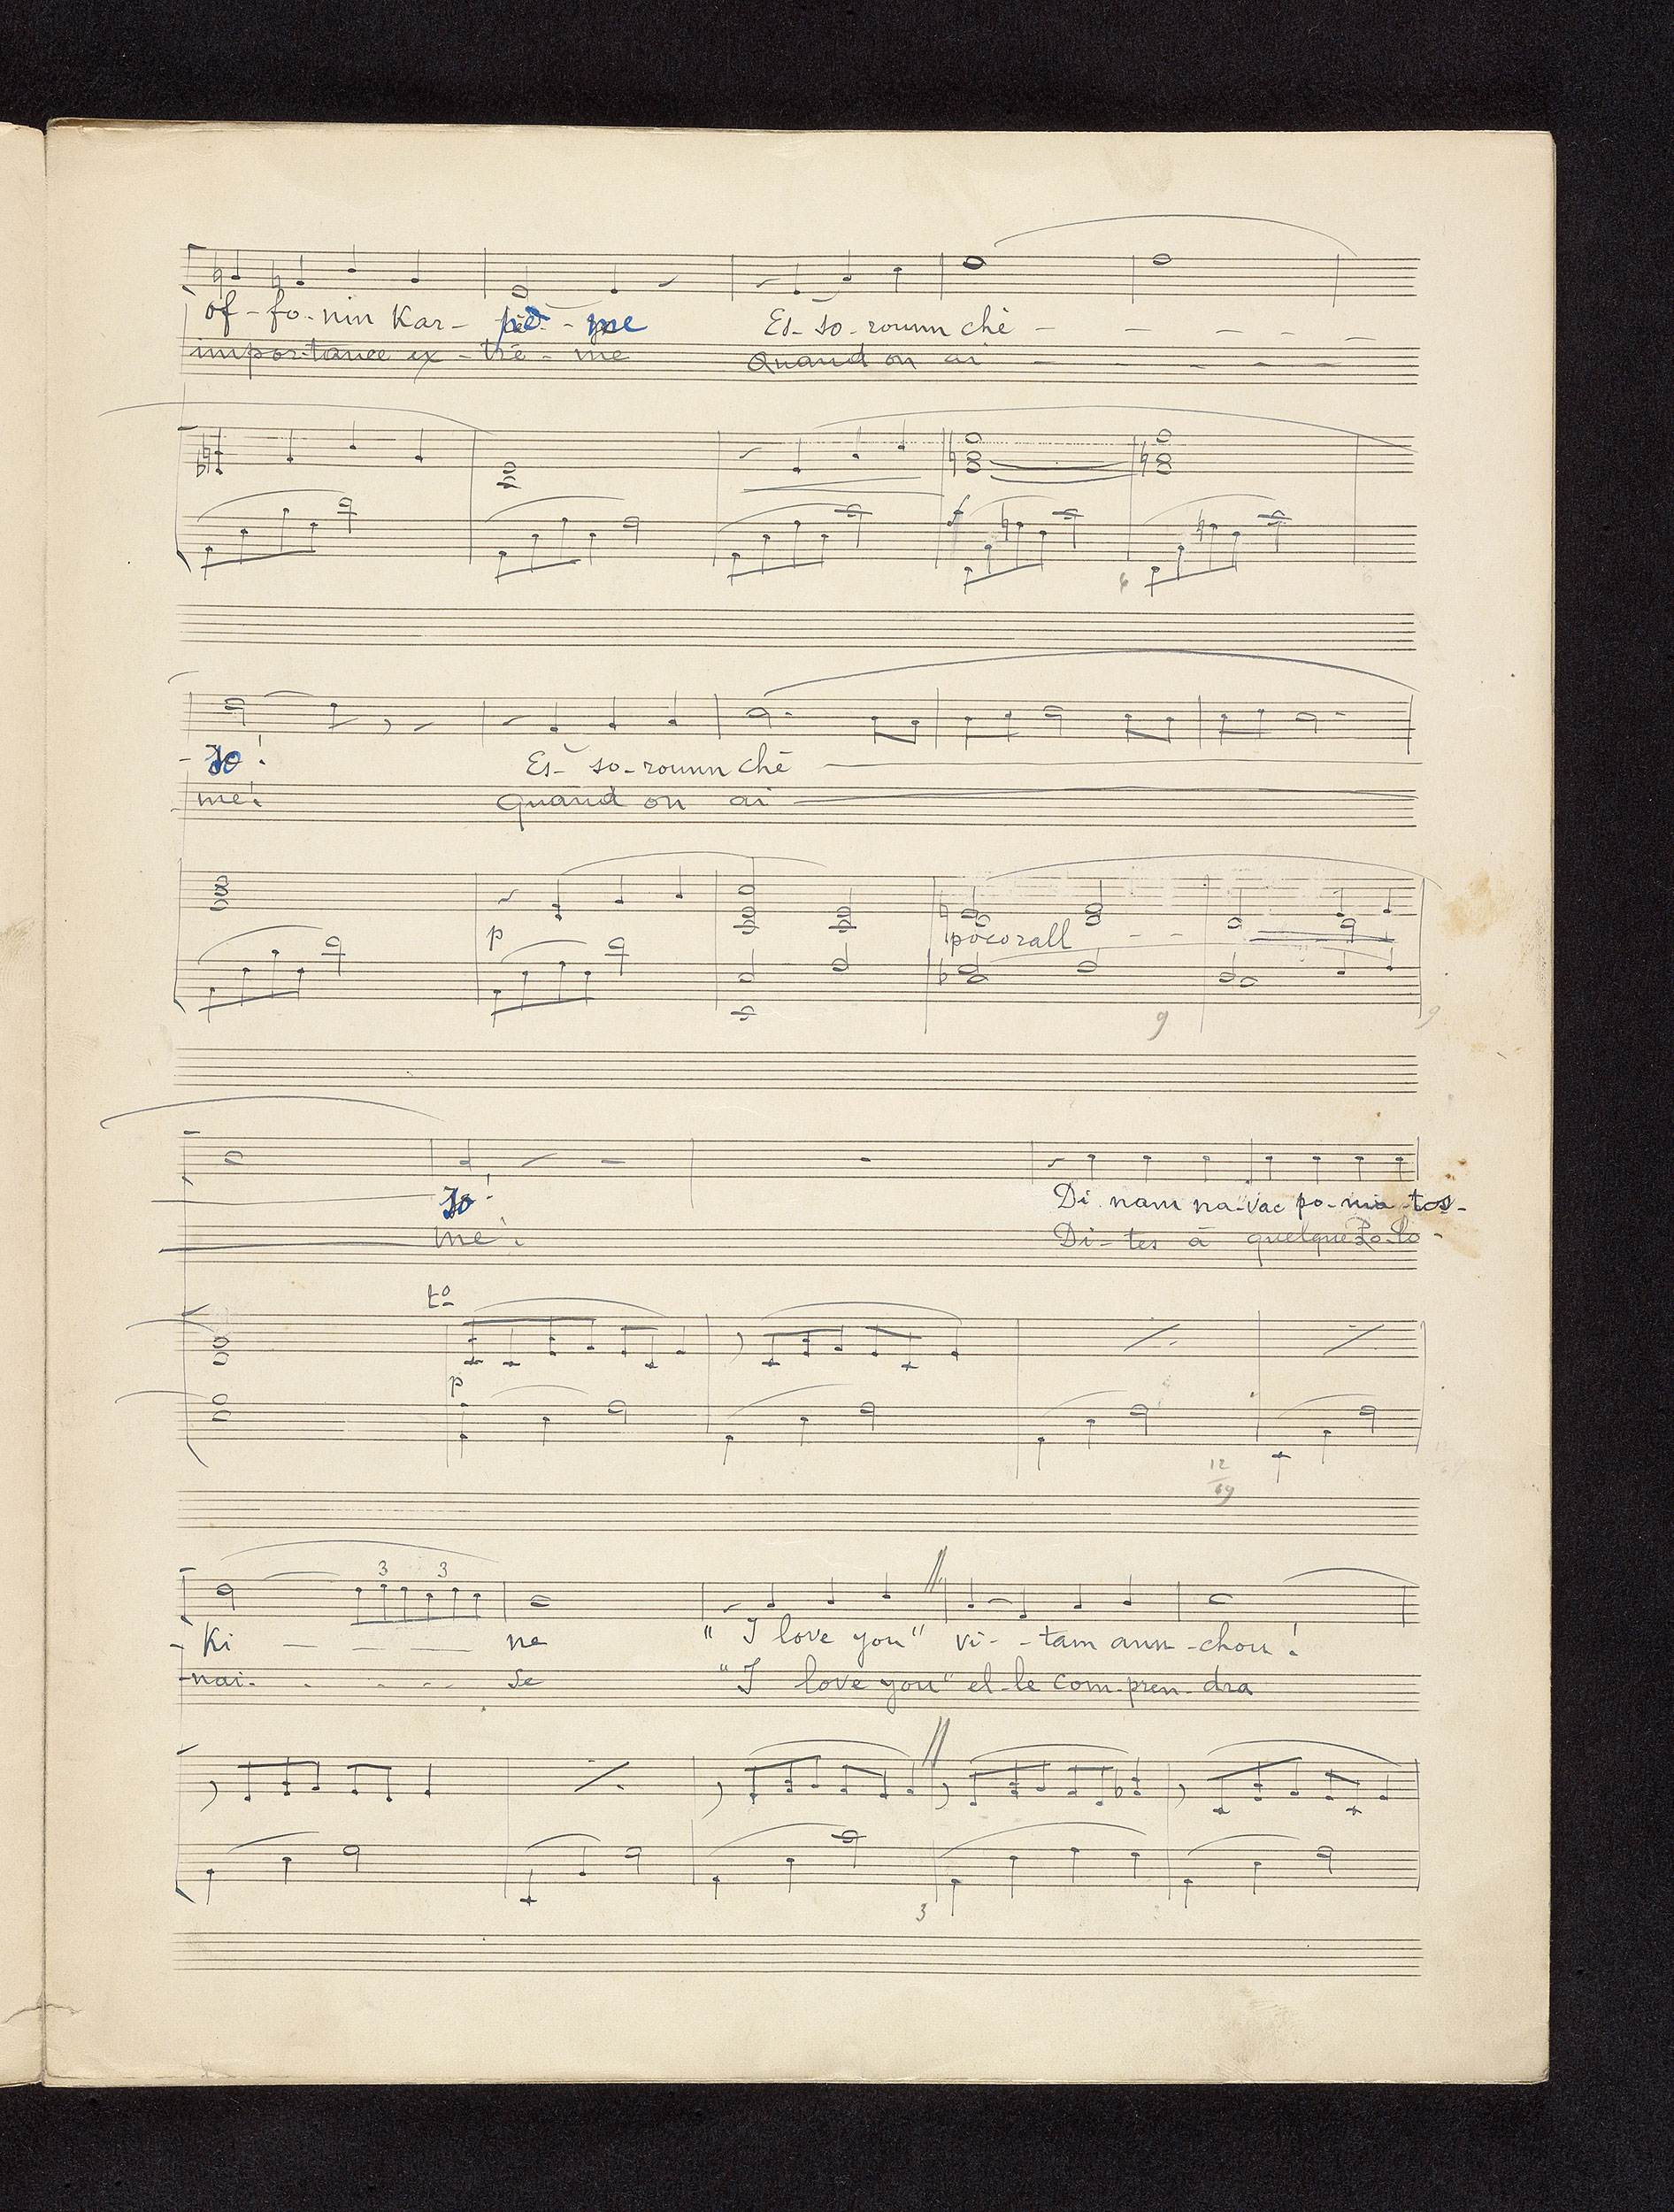 of - fo - nin Kar - pid - me Es - so - rounn chè - - - -
importance ex - trê - me Quand on ai - - - - -
f
6
- Jo !
Es - so - rounn chè
me ! Quand on ai
p poco rall - - -
9 9
Jo !
Di nam na - vac po - nia - tos -
me ! Di - tes à quelque Po - lo -
to
p
12
69
3 3
- Ki - - - - ne " I love you " vi - - tam ann - chou !
- nai - - - - - se " I love you " el - le com - pren - dra
3